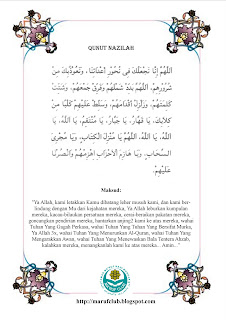 QUNUT NAZILAH
اللَّهُمَّ إِنَّا نَجْعَلُكَ فِي نُحُورِ أَعْدَائِنَا، وَنَعُوذُبِكَ مِنْ
شُرُورِهِمْ، اللَّهُمَّ بَدِّدْ شَمْلَهُمْ وَفَرِّقْ جَمْعَهُمْ، وَشَتِّتْ
كَلِمَتَهُمْ، وَزَلْزِلْ أَقْدَامَهُمْ، وَسَلِّطْ عَلَيْهِمْ كَلْبًا مِنْ
كِلَابِكَ، يَا قَهَّارُ، يَا جَبَّارُ، يَا مُنْتَقِمُ، يَا اللهُ، يَا
اللهُ، يَا اللهُ، اللَّهُمَّ يَا مُنْزِلَ الْكِتَابِ، وَيَا مُجْرِيَ
السَّحَابِ، وَيَا هَازِمَ الْأَحْزَابِ اهْزِمْهُمْ وَانْصُرْنَا
عَلَيْهِمْ.
Maksud:
"Ya Allah, kami letakkan Kamu dibatang leher musuh kami, dan kami ber-
lindung dengan Mu dari kejahatan mereka, Ya Allah leburkan kumpulan
mereka, kacau-bilaukan persatuan mereka, cerai-beraikan pakatan mereka,
goncangkan pendirian mereka, hantarkan anjing2 kamu ke atas mereka, wahai
Tuhan Yang Gagah Perkasa, wahai Tuhan Yang Tuhan Yang Bersifat Murka,
Ya Allah 3x, wahai Tuhan Yang Menurunkan Al-Quran, wahai Tuhan Yang
Mengarakkan Awan, wahai Tuhan Yang Menewaskan Bala Tentera Ahzab,
kalahkan mereka, menangkanlah kami ke atas mereka.. Amin..."
http://marufclub.blogspot.com